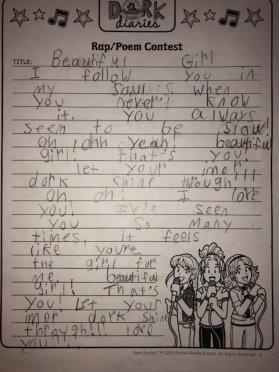 DORK
diaries
Rap/Poem Contest
TITLE: Beautiful Girl
I follow you in
my when
you never know
it. you always
seem to be slow!
oh ohh yeah! beautiful
girl! that's you!
let your
dork shine through!
oh oh! I love
you! seen
you so many
times! it feels
like you're
the girl for
me beautiful
girl! That's
you! Let your
inner dork shine
through!! I love
you!
Dork Diaries™ © 2020 Rachel Renée Russell. All Rights Reserved.